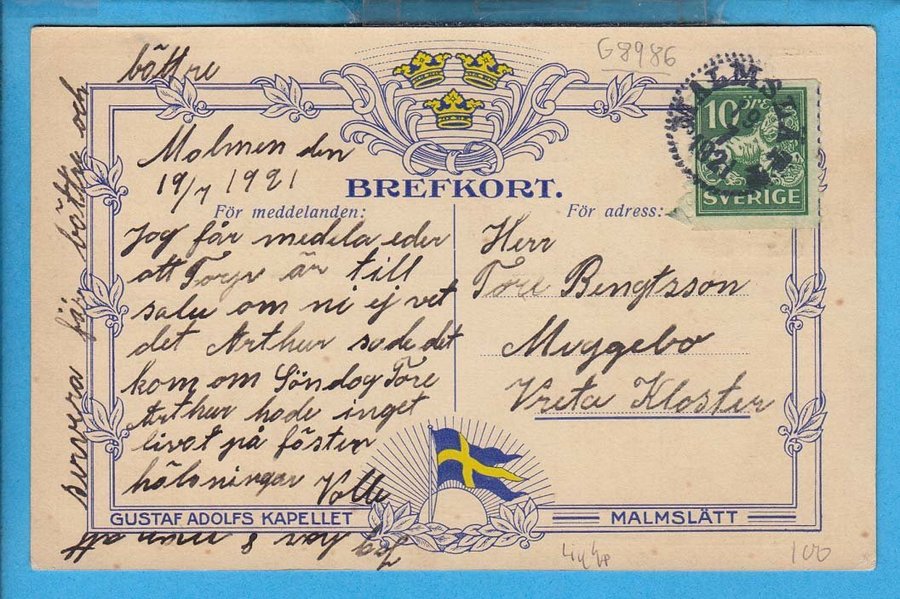 G8986
MALMSLÄTT
10 ÖRE
SVERIGE
BREFKORT.
För meddelanden:
Malmen den
19/7 1921
Jag får medela eder
att Torp är till
salu om ni ej vet
det Arthur sade det
kom om Söndag Tore
Arthur hade inget
livat på fösten
hälsningar Valle
För adress:
Herr
Tore Bengtsson
Muggebo
Vreta Kloster
GUSTAF ADOLFS KAPELLET
MALMSLÄTT
Jag har 8 man att
servera får bättre och
bättre
100